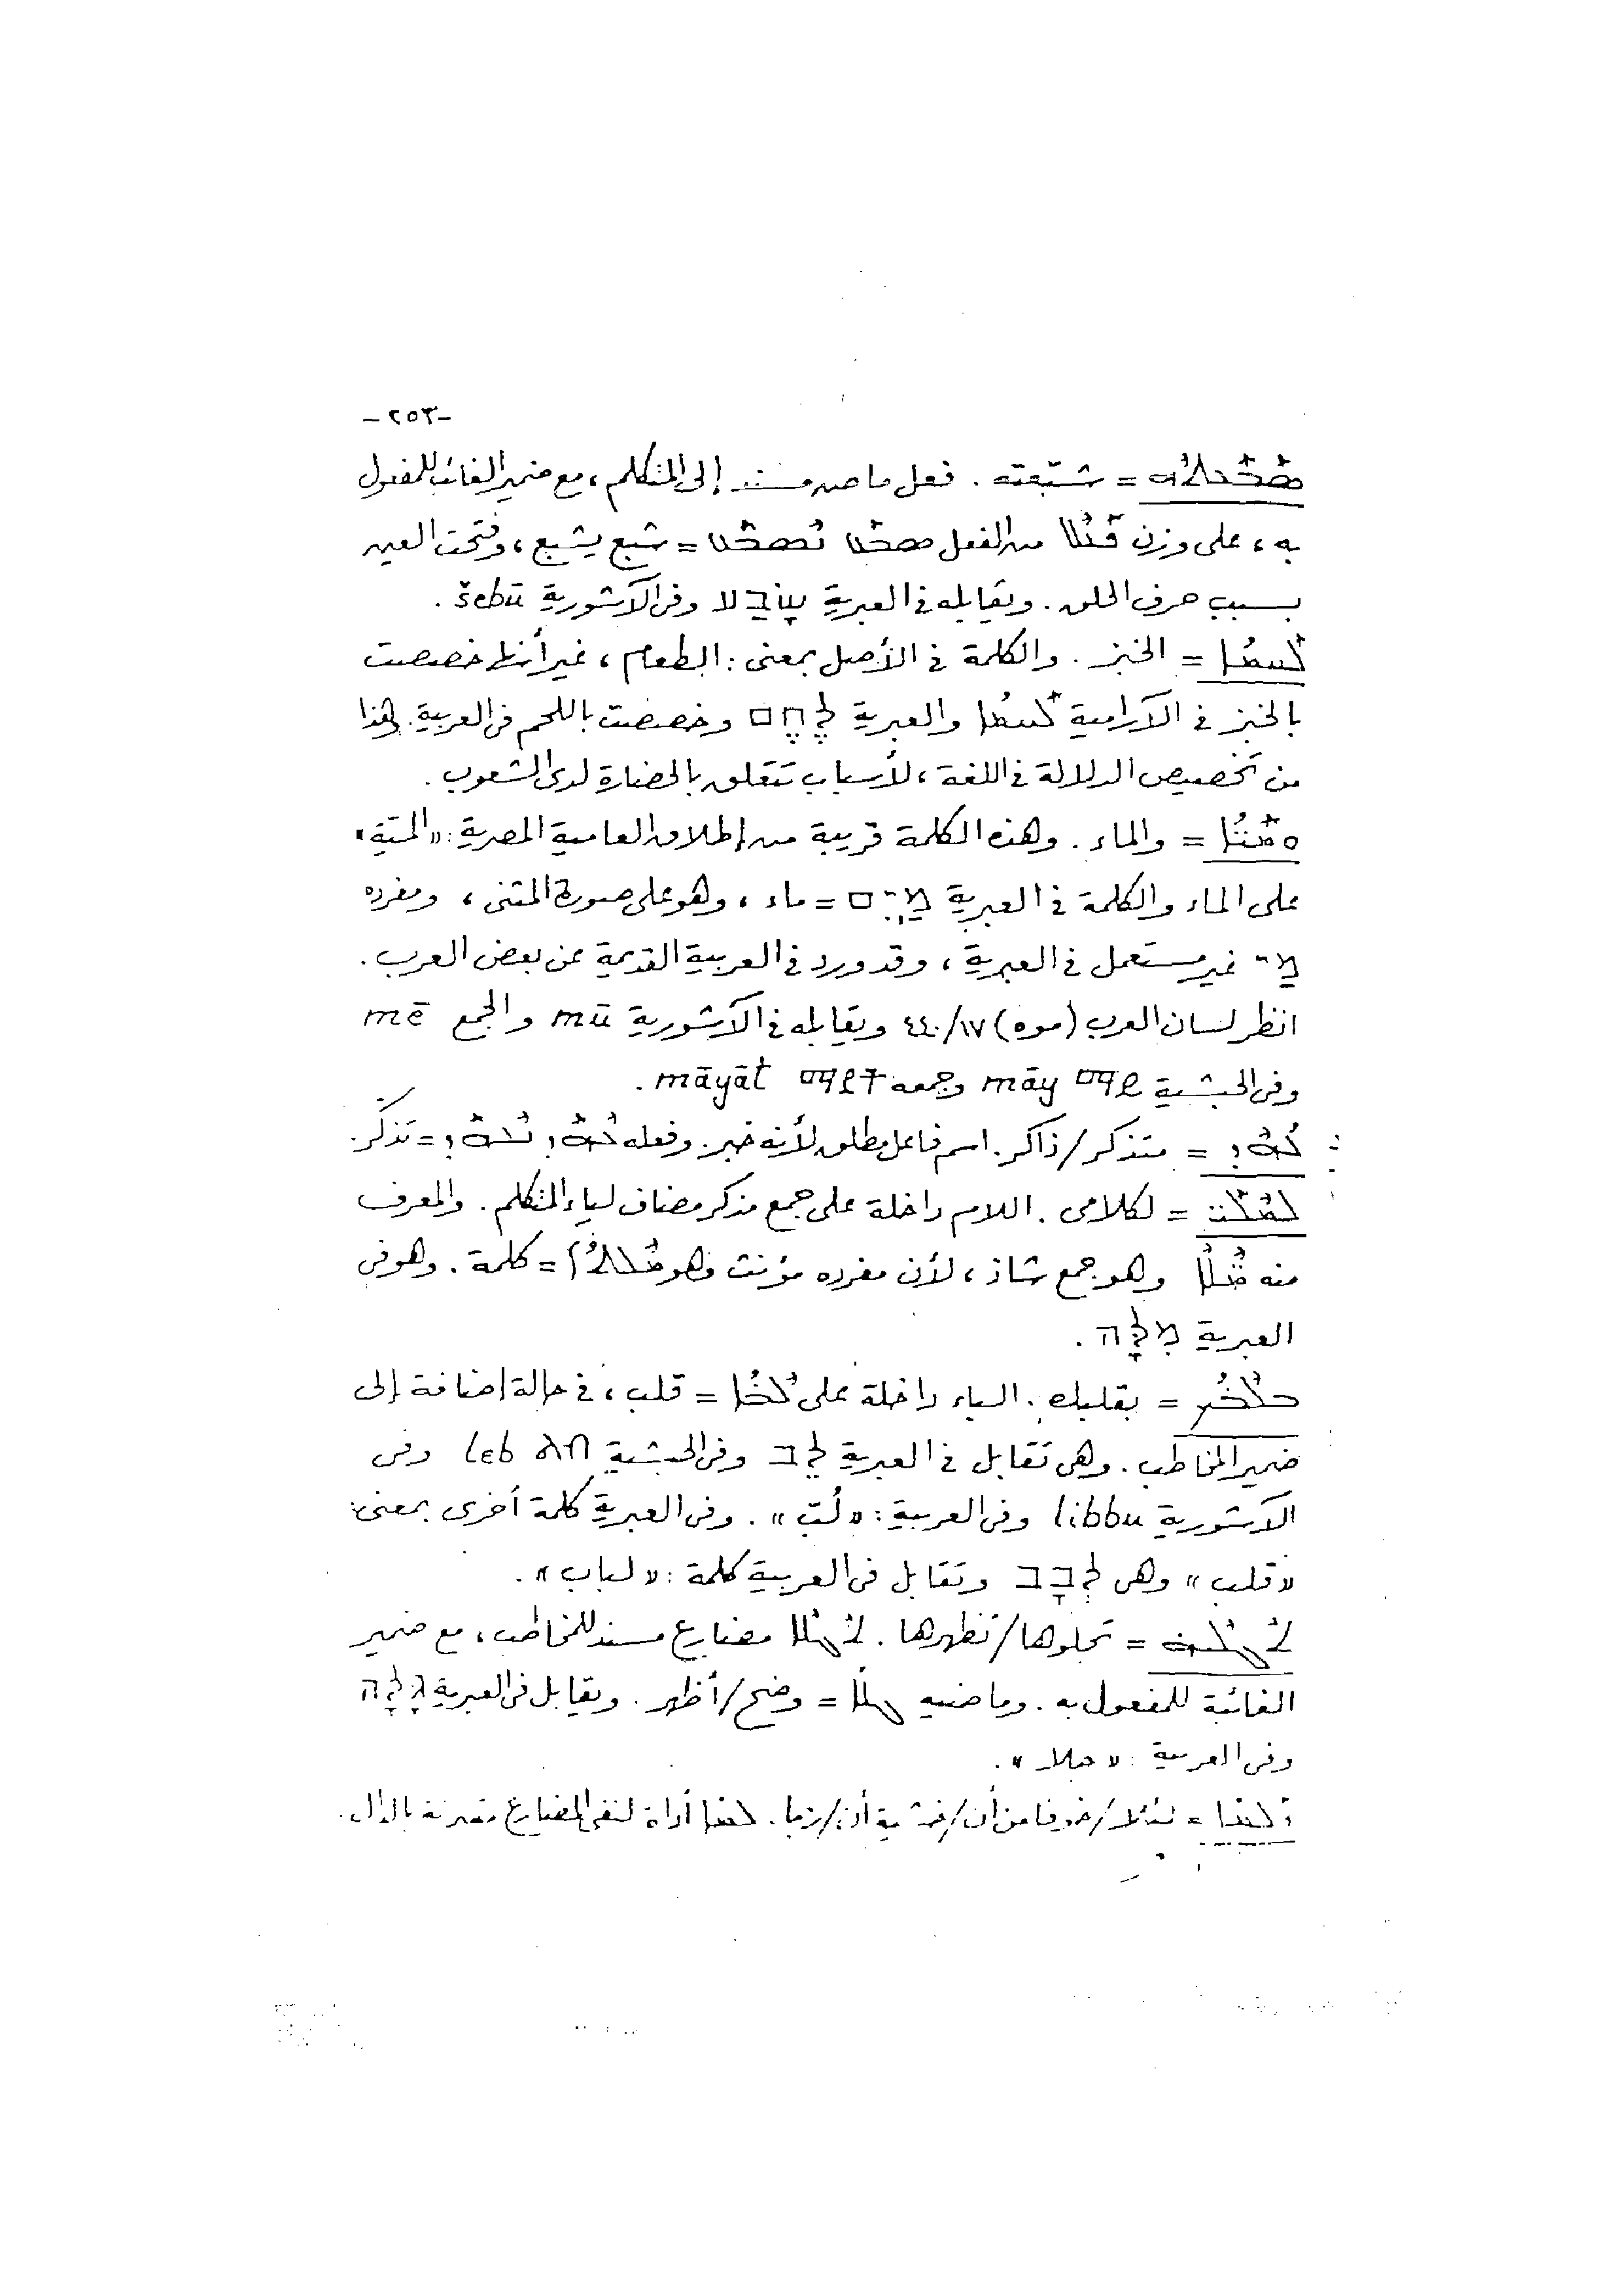 -٢٥٣-
ܣܰܒܰܥܬܶܗ = شبّعته . فعل ماض مسند إلى المتكلم ، مع ضمير الغائب للمفعول
به ، على وزن من الفعل ܣܒܰܥ ܢܶܣܒܰܥ = شبع يشبع ، وفتحت العين
بسبب حرف الحلق . ويقابله فى العبرية שָׂבַע وفى الآشورية šebū .
ܠܰܚܡܳܐ = الخبز . والكلمة فى الأصل بمعنى : الطعام ، غير أنها خصصت
بالخبز فى الآرامية ܠܰܚܡܳܐ والعبرية לֶחֶם وخصصت باللحم فى العربية . وهذا
من تخصيص الدلالة فى اللغة ، لأسباب تتعلق بالحضارة لدى الشعوب .
ܘܡܰܝ̈ܳܐ = والماء . وهذه الكلمة قريبة من إطلاق العامية المصرية : «الميّة»
على الماء والكلمة فى العبرية מַיִם = ماء ، وهو على صورة المثنى ، ومفرده
מַי غير مستعمل فى العبرية ، وقد ورد فى العربية القديمة عن بعض العرب .
انظر لسان العرب (موه) ١٧/٤٤٠ ويقابله فى الآشورية mū والجمع mē
وفى الحبشية ማይ māy وجمعه ማያት māyāt .
ܥܳܗܶܕ = متذكر/ذاكر . اسم فاعل مطلق لأنه خبر . وفعله ܥܗܰܕ ܢܶܥܗܰܕ = تذكّر .
ܠܡܶܠܰܝ̈ = لكلامى . اللام داخلة على جمع مذكر مضاف لياء المتكلم . والمعرف
منه ܡܶܠ̈ܶܐ وهو جمع شاذ ، لأن مفرده مؤنث وهو ܡܶܠܬܳܐ = كلمة . وهو فى
العبرية מִלָּה .
ܒܠܶܒܳܟ = بقلبك . الباء داخلة على ܠܶܒܳܐ = قلب ، فى حالة إضافة إلى
ضمير المخاطب . وهى تقابل فى العبرية לֵב وفى الحبشية ልብ leb وفى
الآشورية libbu وفى العربية : «لُبّ» . وفى العبرية كلمة أخرى بمعنى :
«قلب» وهى לֵבָב وتقابل فى العربية كلمة : «لباب» .
ܬܶܓܠܶܝܗ = تجلوها/تظهرها . ܬܶܓܠܶܐ مضارع مسند للمخاطب ، مع ضمير
الغائبة للمفعول به . وماضيه ܓܠܳܐ = وضح/أظهر . ويقابل فى العبرية גָּלָה
وفى العربية : «جلا» .
ܕܰܠܡܳܐ = لئلا/خوفا من أن/خشية أن/ربما . ܠܡܳܐ أداة لنفى المضارع مقترنة بالدال .